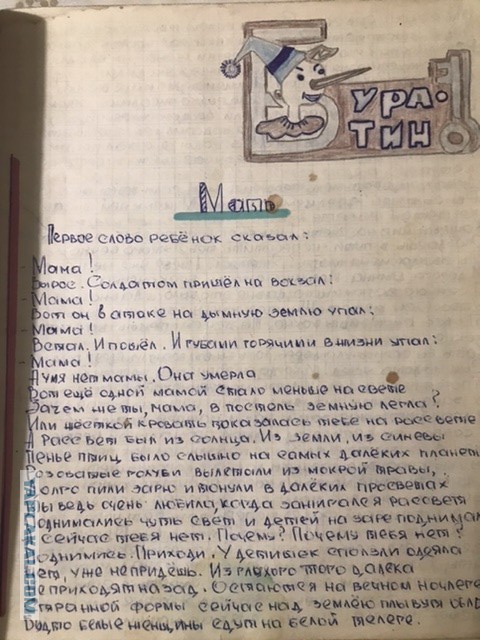 Б УРА-
ТИНО
Мать
Первое слово ребёнок сказал:
Мама!
Вырос. Солдатом пришёл на вокзал:
Мама!
Вот он в атаке на дымную землю упал:
Мама!
Встал. И пошёл. И губами горячими к жизни упал:
Мама!
А у меня нет мамы. Она умерла
Вот ещё одной мамой стало меньше на свете
Зачем же ты, мама, в постель земную легла?
Или жёсткой кровать показалась тебе на рассвете
А рассвет был из солнца. Из земли, из синевы
Пенье птиц было слышно на самых далёких планет
Розоватые голуби вылетали из мокрой травы,
Долго пили зарю и тонули в далёких просветах
Ты ведь очень любила, когда занимался рассвет
однимались чуть свет и детей на заре поднимал
сейчас тебя нет. Почему? Почему тебя нет?
однимись. Приходи. У детишек сползли одеяла
ет, уже не придёшь. Из глухого того далека
е приходят назад. Остаются на вечном ночлеге
странной формы сейчас над землёю плывут обл
Будто белые женщины едут на белой телеге.
YAPLAKAL.COM